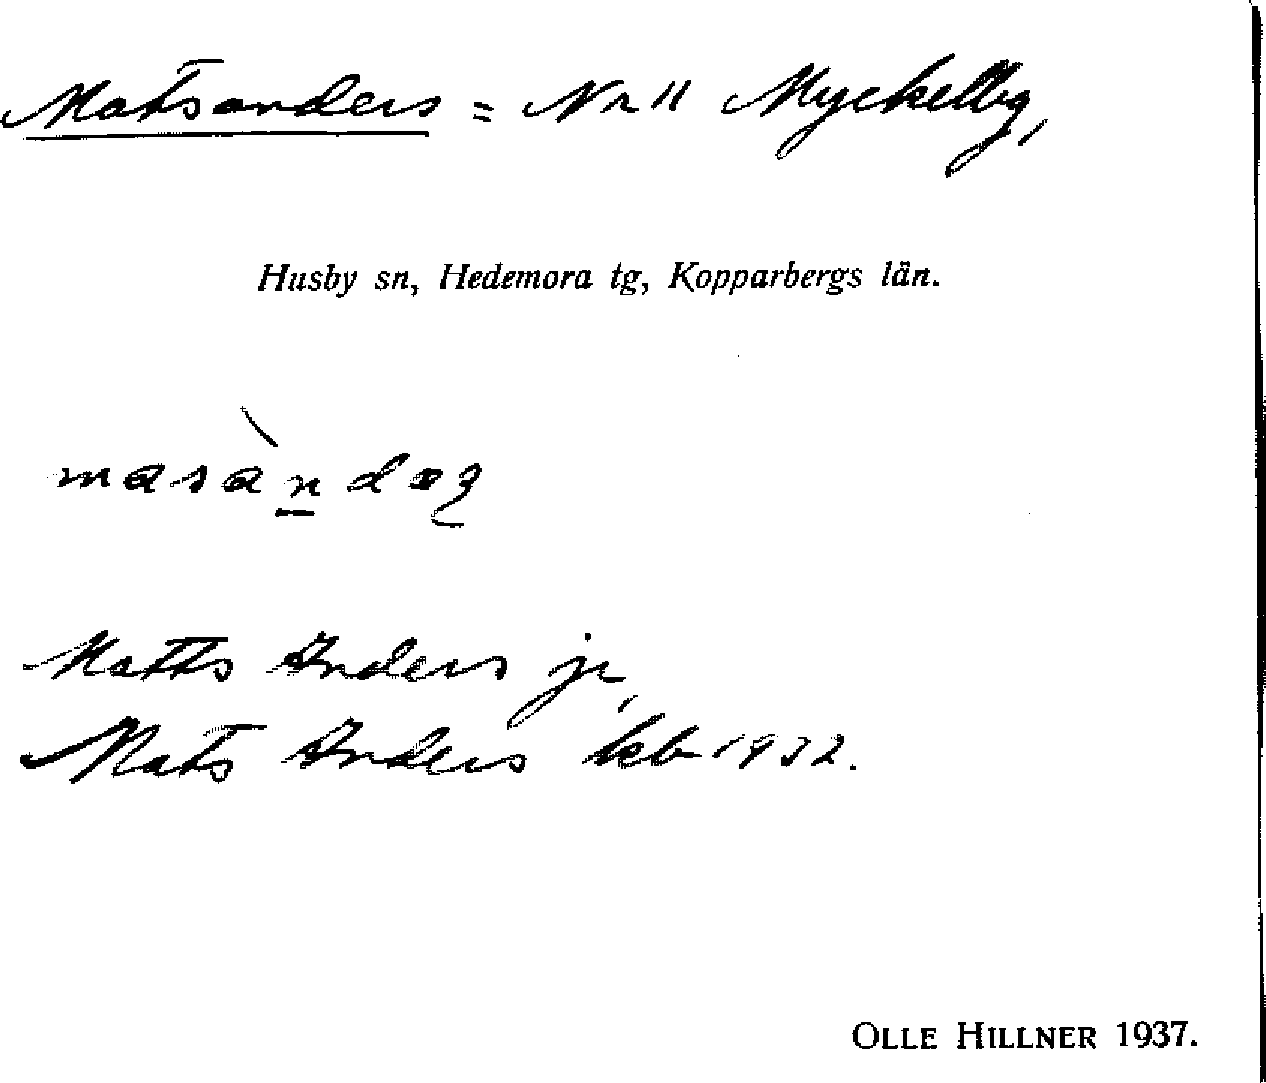 Matsanders = Nr 11 Myckelby,
Husby sn, Hedemora tg, Kopparbergs län.
Matts Anders jr,
Mats Anders kb 1932.
OLLE HILLNER 1937.